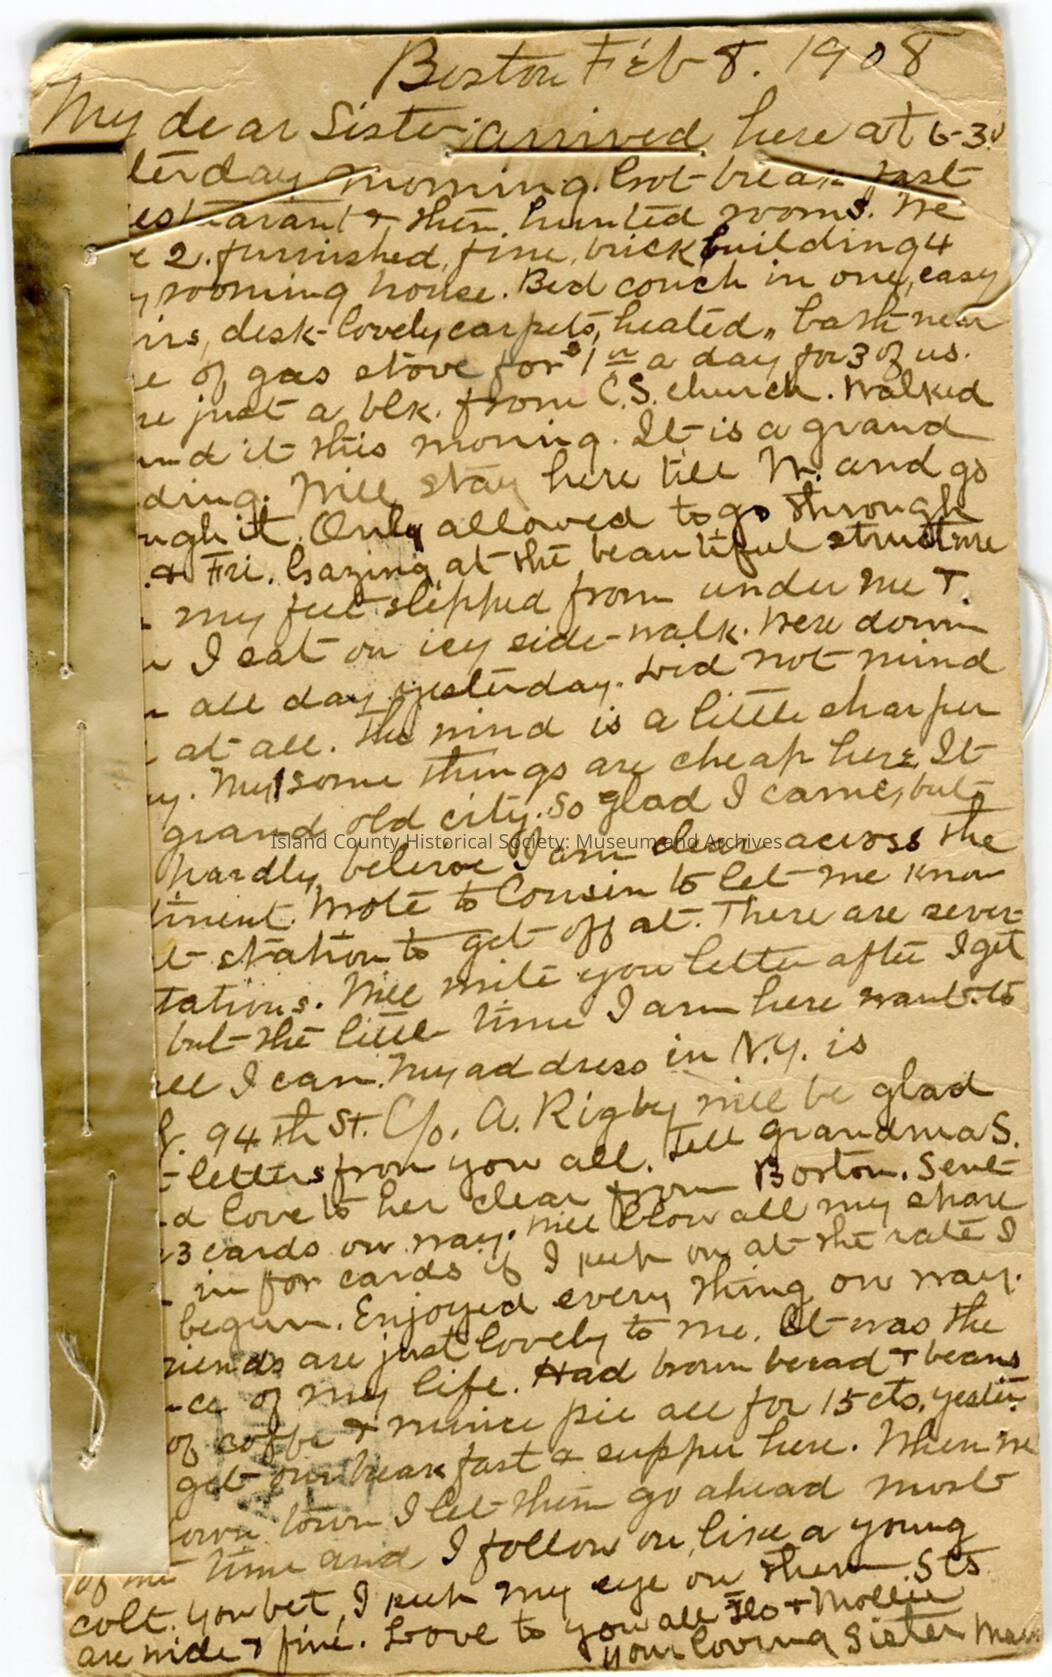 Boston Feb 8. 1908
My dear Sister, arrived here at 6-30
terday morning. Got break fast
estaraunt & then hunted rooms. We
e 2. furnished, fine, brick building 4
y rooming house. Bed couch in one, easy
irs, desk- lovely carpets, heated, bath near
e of gas stove for $1 00 a day for 3 of us.
re just a blk. from C.S. church. Walked
und it this moring. It is a grand
ding. Will stay here till W. and go
ugh it. Only allowed to go through
. & Fri. Gazing at the beautiful structure
my feet slipped from under me &
I sat on icy side-walk. Were down
all day yesterday. Did not mind
at all. The wind is a little sharper
y. My! some things are cheap here. It
grand old city. So glad I came, but
hardly beleive I am clear across the
Island County Historical Society: Museum and Archives
tinent. Wrote to Cousin to let me know
t station to get off at. There are sever-
tations. Will write you letter after I get
but the little time I am here want to
ll I can. My address in N.Y. is
94th St. C/o. A. Rigby will be glad
letters from you all. Tell grandma S.
d love to her clear from Boston. Sent
3 cards on way. Will blow all my spare
in for cards if I keep on at the rate I
begun. Enjoyed every thing on way.
riends are just lovely to me. It was the
ce of my life. Had brown beread & beans
of coffe & mince pie all for 15 cts, yester
get our breakfast & supper here. When we
own town I let them go ahead most
of the time and I follow on, like a young
colt. you bet, I keep my eye on them. Sts
are wide & fine. Love to you all Flo & Mollie
your loving Sister